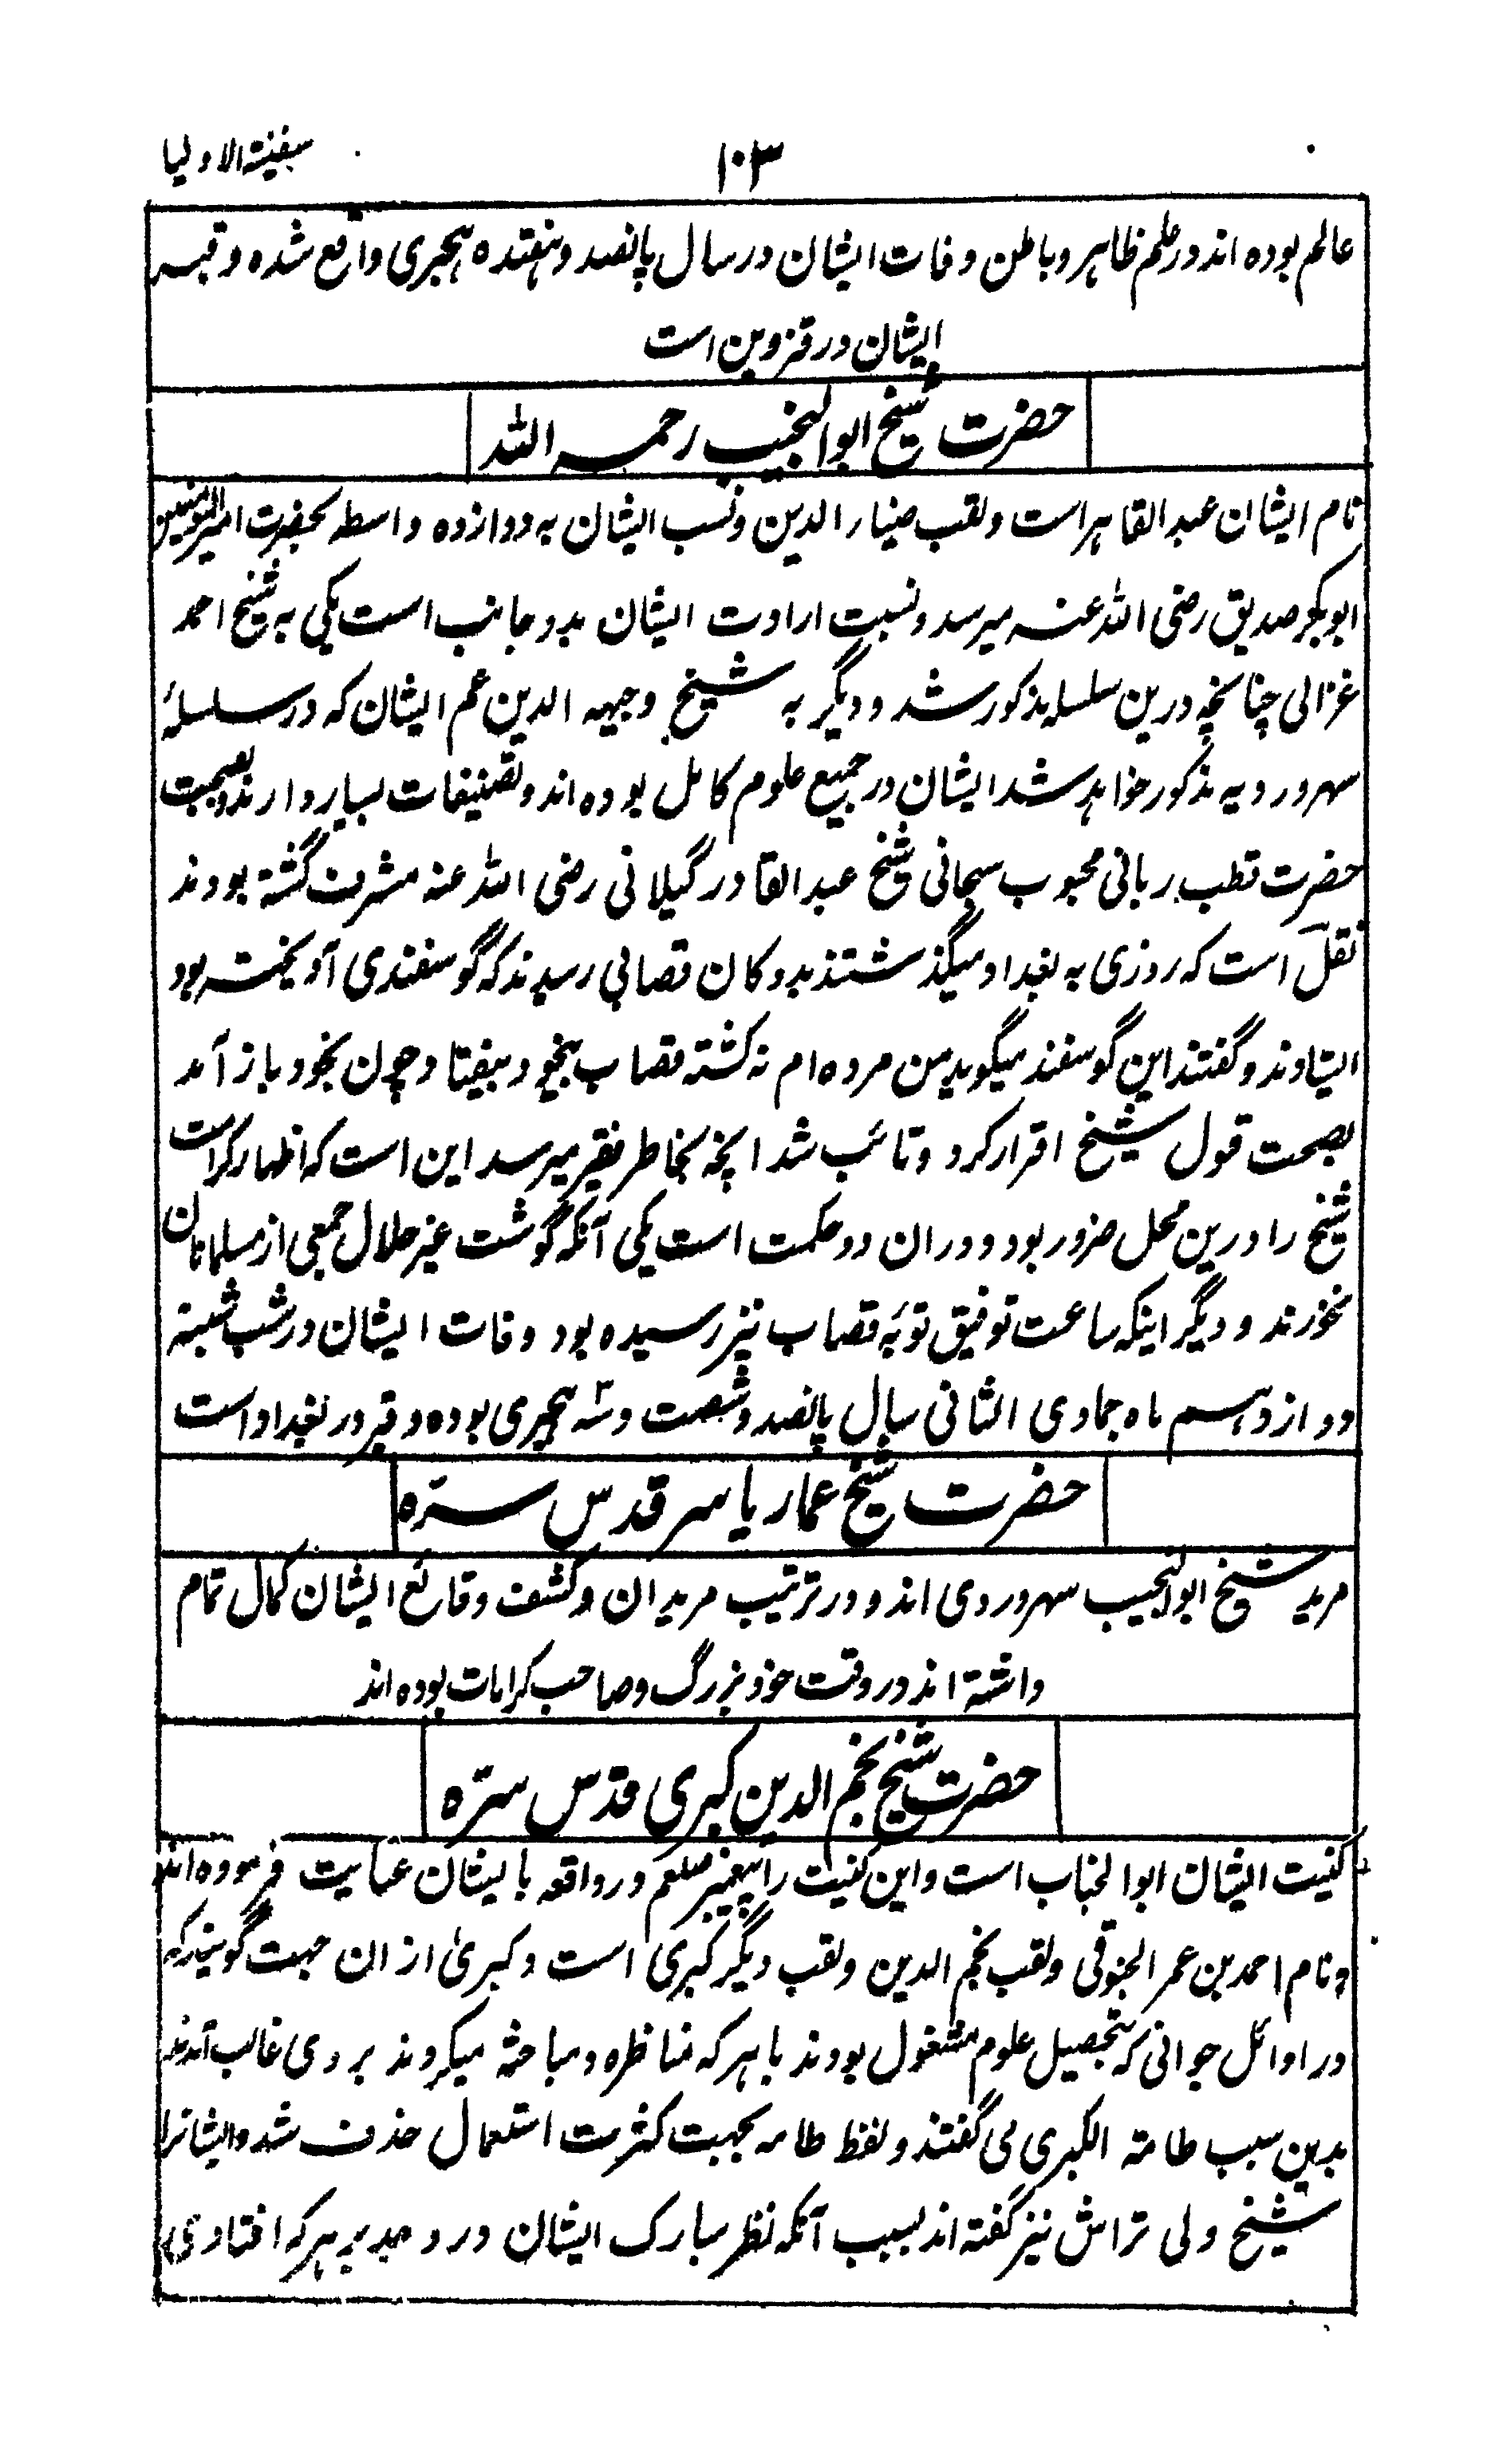 سفینۃ الاولیا
۱۰۳
عالم بوده اند در علم ظاہر و باطن وفات ایشان در سال پانصد و ہفتده ہجری واقع شده و قبر
ایشان در قزوین است
حضرت شیخ ابوالنجیب رحمہ اللہ
نام ایشان عبدالقاہر است و لقب ضیاء الدین و نسب ایشان بہ دوازده واسطہ بحضرت امیرالمومنین
ابوبکر صدیق رضی اللہ عنہ میرسد و نسبت ارادت ایشان بدو جانب است یکی بہ شیخ احمد
غزالی چنانچہ درین سلسلہ مذکور شد و دیگر بہ شیخ وجیہہ الدین عم ایشان کہ در سلسلۂ
سہروردیہ مذکور خواہد شد ایشان در جمیع علوم کامل بوده اند و تصنیفات بسیار دارند و بصحبت
حضرت قطب ربانی محبوب سبحانی شیخ عبدالقادر گیلانی رضی اللہ عنہ مشرف گشتہ بودند
نقل است کہ روزی بہ بغداد میگذشتند بدوکان قصابی رسیدند کہ گوسفندی آویختہ بود
ایستادند و گفتند این گوسفند میگوید من مرده ام نہ کشتہ قصاب بیخود بیفتاد و چون بخود باز آمد
بصحت قول شیخ اقرار کرد و تائب شد انچہ بخاطر فقیر میرسد این است کہ اظہار کرامت
شیخ را درین محل ضرور بود و دران دو حکمت است یکی آنکہ گوشت غیر حلال جمعی از مسلمانان
نخورند و دیگر اینکہ ساعت توفیق توبۂ قصاب نیز رسیده بود وفات ایشان در شب شنبہ
دوازدہم ماه جمادی الثانی سال پانصد و شصت و سہ ہجری بوده و قبر در بغداد است
حضرت شیخ عمار یاسر قدس سرّه
مرید شیخ ابوالنجیب سہروردی اند و در ترتیب مریدان و کشف وقائع ایشان کمال تمام
داشتہ اند در وقت خود بزرگ و صاحب کرامات بوده اند
حضرت شیخ نجم الدین کبری قدّس سرّه
کنیت ایشان ابوالجناب است و این کنیت را پیغمبر صلعم در واقعہ بایشان عنایت فرموده اند
و نام احمد بن عمر الخیوقی و لقب نجم الدین و لقب دیگر کبری است و کبریٰ از ان جہت گویند کہ
در اوائل جوانی کہ بتحصیل علوم مشغول بودند با ہر کہ مناظره و مباحثہ میکردند بر وی غالب آمدند
بدین سبب طامتہ الکبری می گفتند و لفظ طامہ بجہت کثرت استعمال حذف شد و ایشانرا
شیخ ولی تراش نیز گفتہ اند بسبب آنکہ نظر مبارک ایشان در وجد بر ہر کہ افتادی